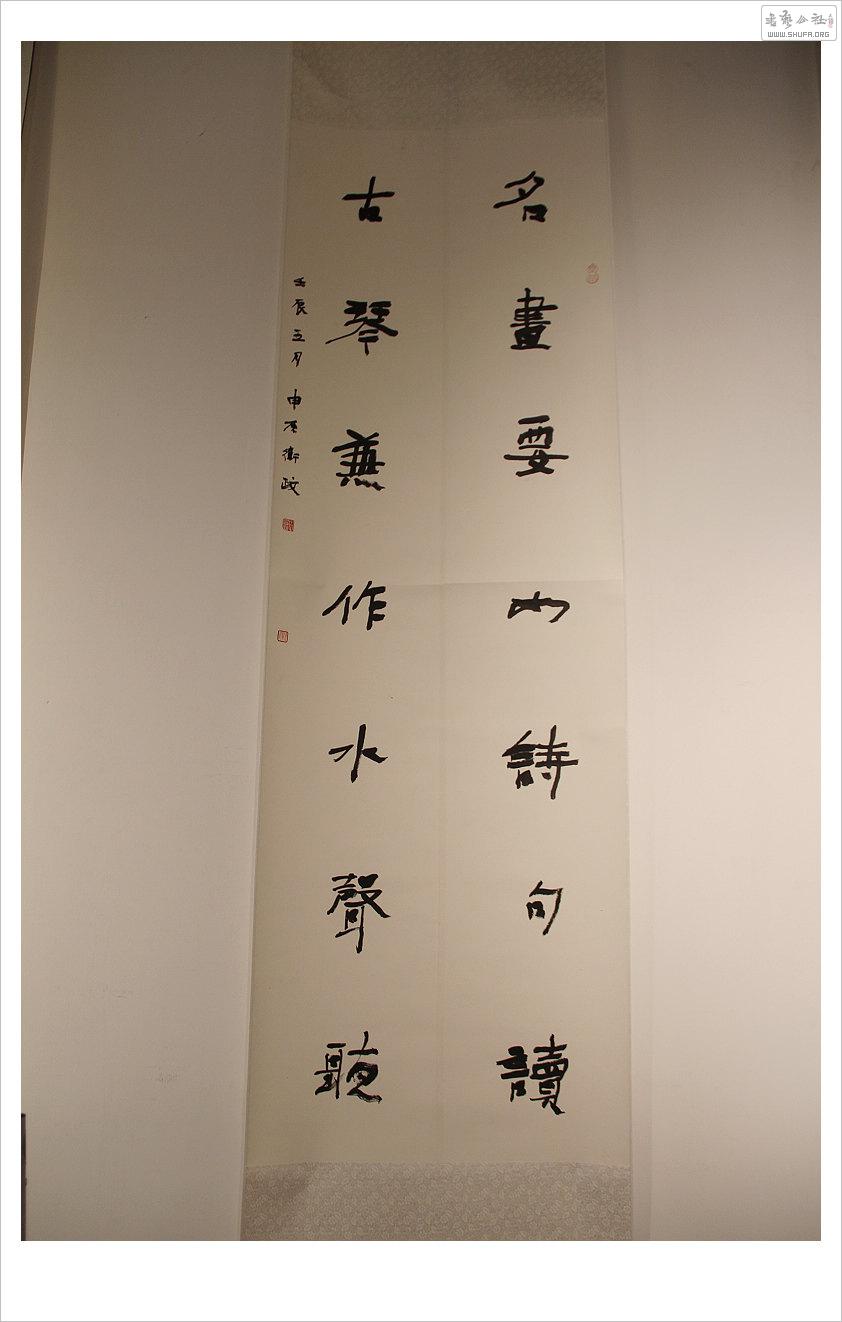 名畫要如詩句讀
古琴兼作水聲聽
壬辰五月 申 衛政
書藝公社
WWW.SHUFA.ORG